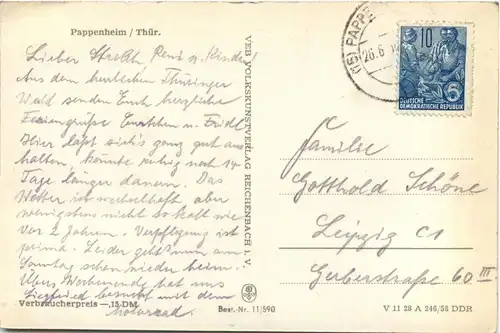 Pappenheim / Thür.
Lieber Renè u. Kinder!
Aus dem herrlichen Thüringer
Wald senden Euch herzliche
Feriengrüße Gretchen u. Friedl
Hier läßt sich's ganz gut aus
halten, könnte ruhig noch 14
Tage länger dauern. Das
Wetter ist wechselhaft aber
wenigstens nicht so kalt wie
vor 2 Jahren. Verpflegung ist
prima. Leider geht's nun am
Sonntag schon wieder heim.
Übers Wochenende hat uns
Siegfried besucht mit dem
Motorrad.
Verbraucherpreis —,15 DM
VEB VOLKSKUNSTVERLAG REICHENBACH i. V.
Best.-Nr. 11/590
(15) PAPPEN
26.6
10
5
DEUTSCHE
DEMOKRATISCHE REPUBLIK
Familie
Gotthold Schöne
Leipzig C1
Gerberstraße 60 III
V 11 28 A 246/58 DDR